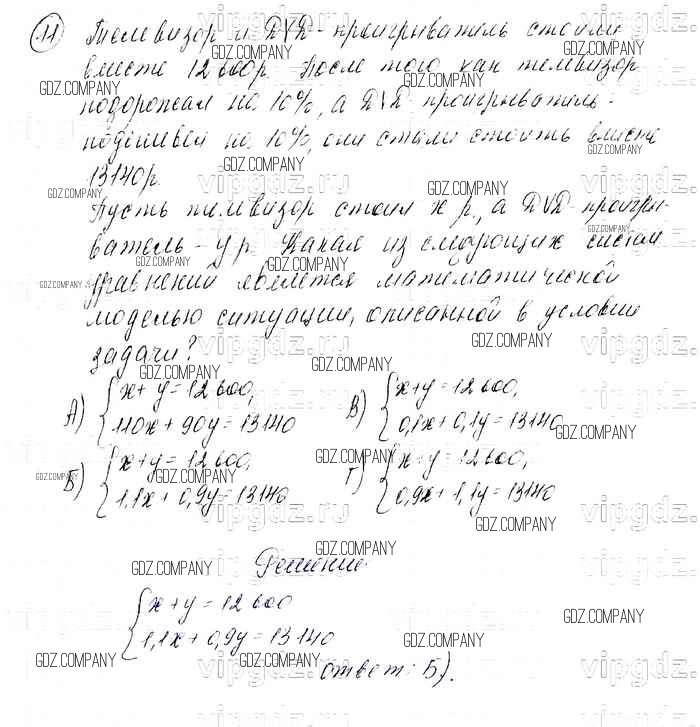 11 Телевизор и DVD-проигрыватель стоили
вместе 12 600р. После того как телевизор
подорожал на 10%, а DVD проигрыватель-
подешевел на 10%, они стали стоить вместе
13140р.
Пусть телевизор стоил x р., а DVD-проигры-
ватель - y р. Какая из следующих систем
уравнений является математической
моделью ситуации, описанной в условии
задачи?
А) { x + y = 12 600,
110x + 90y = 13140
В) { x + y = 12 600,
0,1x + 0,1y = 13140
Б) { x + y = 12 600,
1,1x + 0,9y = 13140
Г) { x - y = 12 600,
0,9x + 1,1y = 13140
Решение
{ x + y = 12 600
1,1x + 0,9y = 13140
ответ: Б).
GDZ.COMPANY
vipgdz.ru